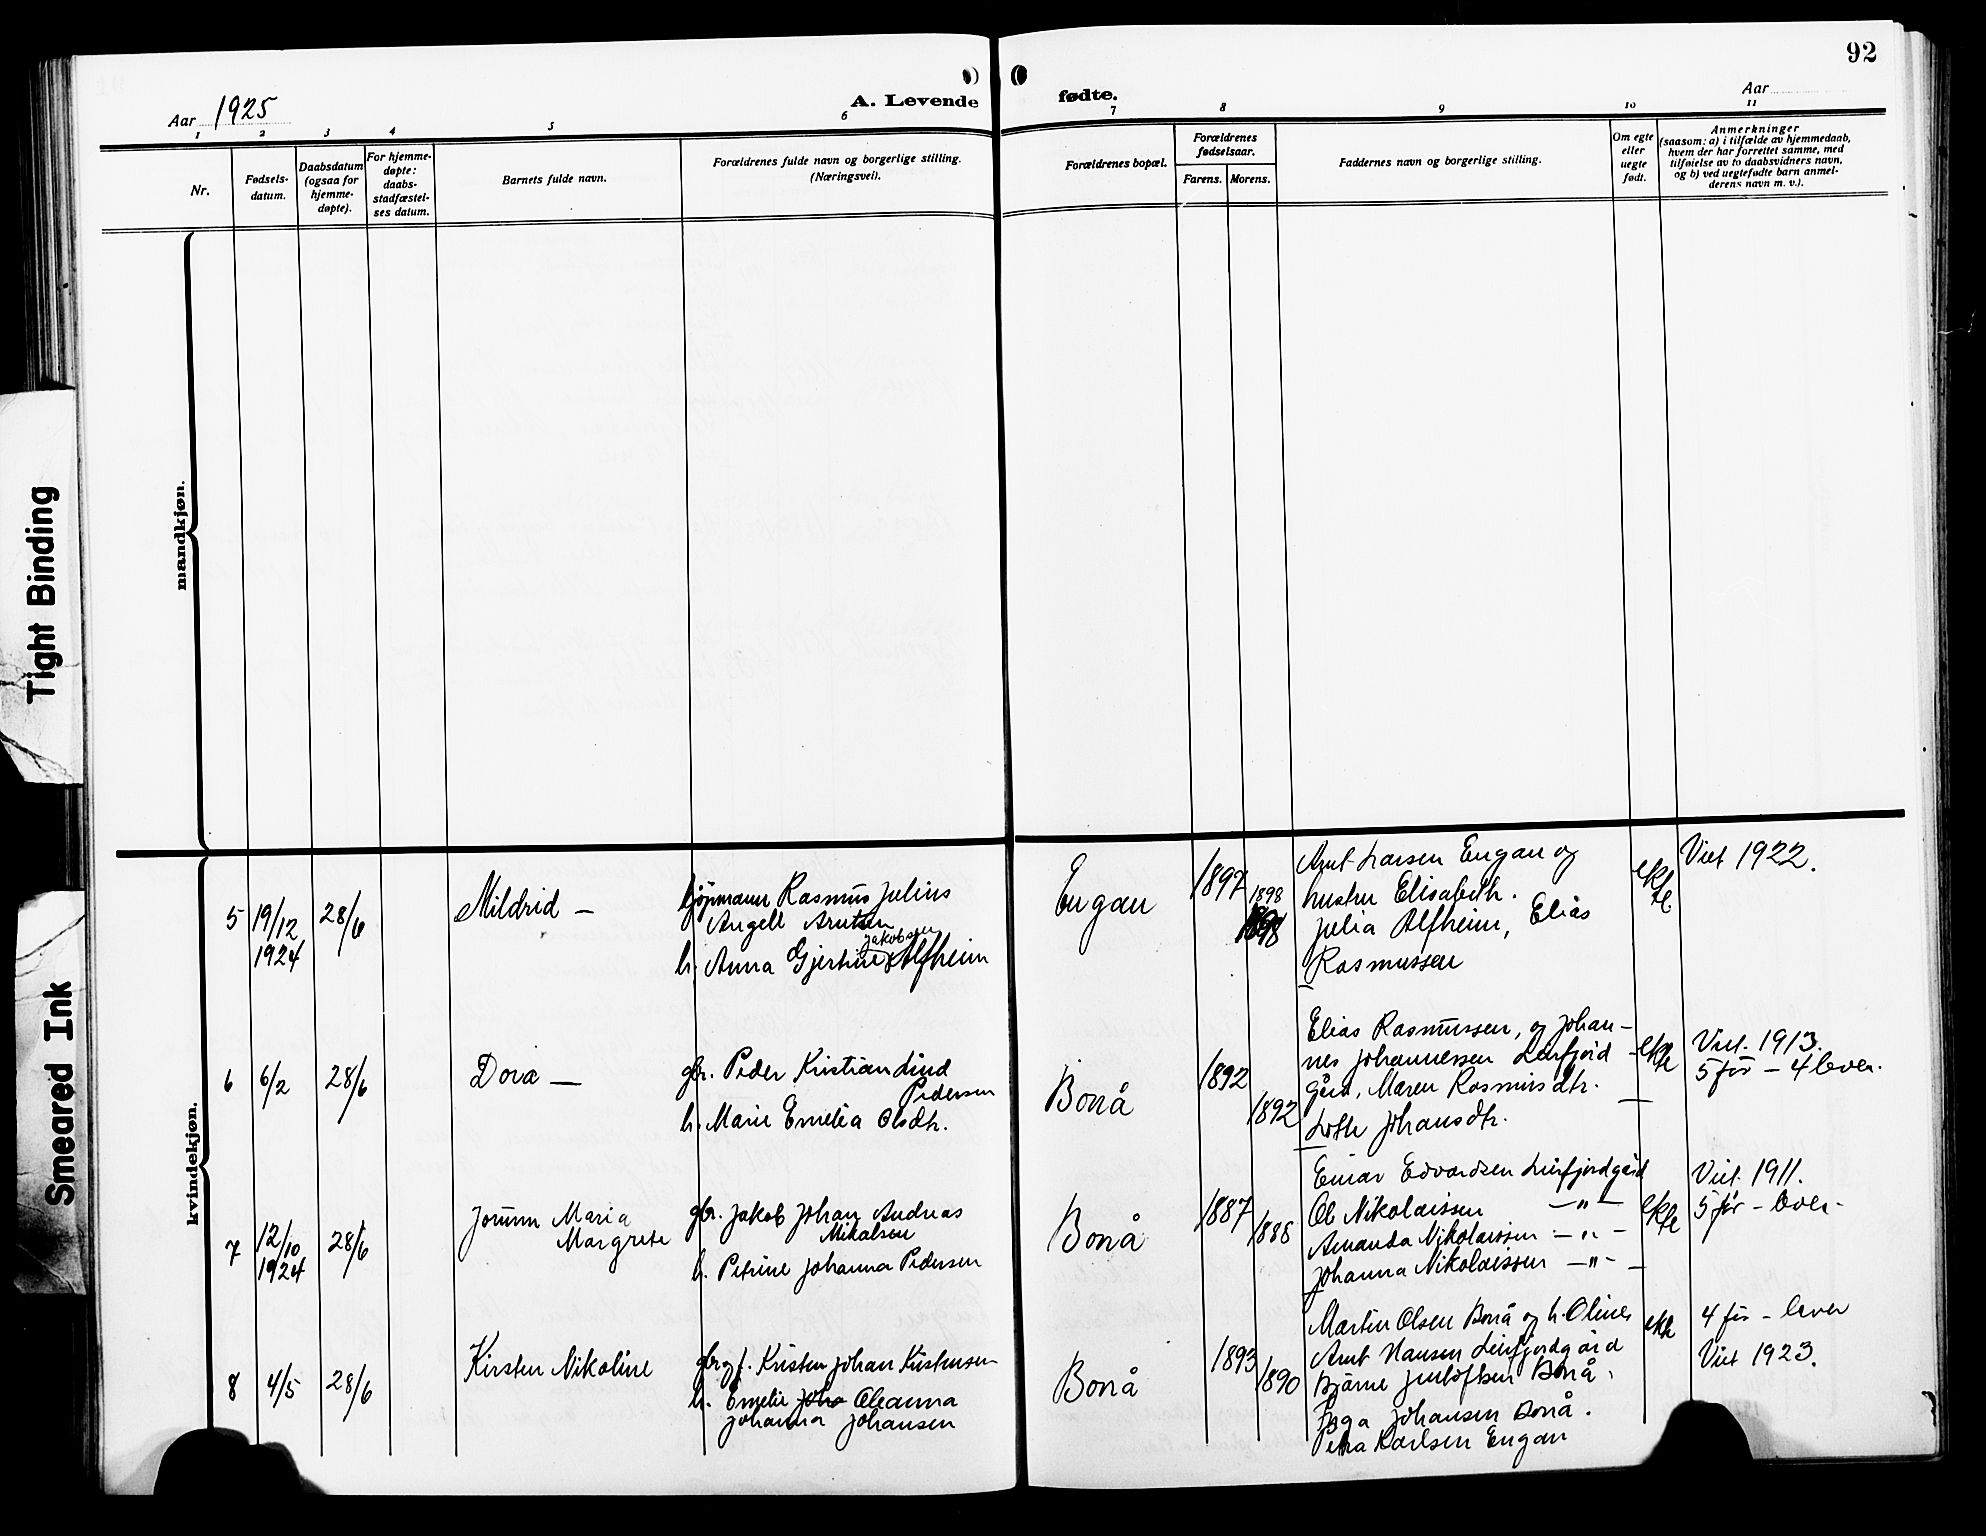 92
Aar 1925
A. Levende
fødte.
Aar
1 2 3 4 5 6 7 8 9 10 11
Nr.
Fødsels-
datum.
Daabsdatum
(ogsaa for
hjemme-
døpte).
For hjemme-
døpte:
daabs-
stadfæstel-
ses datum.
Barnets fulde navn.
Forældrenes fulde navn og borgerlige stilling.
(Næringsvei).
Forældrenes bopæl.
Forældrenes
fødselsaar.
Farens. Morens.
Faddernes navn og borgerlige stilling.
Om egte
eller
uegte
født.
Anmerkninger
(saasom: a) i tilfælde av hjemmedaab,
hvem der har forrettet samme, med
tilføielse av to daabsvidners navn,
og b) ved uegtefødte barn anmel-
derens navn m. v.).
mandkjøn.
kvindekjøn.
Tight Binding
Smeared Ink
5 19/12
1924
28/6
Mildrid —
Rasmus Julius
Angell Arntsen
Jakobsen
h. Anna Gjertine Alfheim
Engan
1897
1898
1898
Arnt Larsen Engan og
hustru Elisabeth.
Julia Alfheim, Elias
Rasmussen
ekte
Viet 1922.
6 6/2 28/6
Dora —
gbr. Peder Kristian Lind
Pedersen
h. Marie Emelia Olsdtr.
Bonå
1892
1892
Elias Rasmussen, og Johan-
nes Johannessen Leirfjord-
gård, Maren Rasmusdtr.
Lotte Johansdtr.
ekte
Viet. 1913.
5 før — 4 lever.
7 12/10
1924
28/6
Jorunn Maria
Margrete
gbr. Jakob Johan Andreas
Mikalsen
h. Petrine Johanna Pedersen
Bonå
1887
1888
Einar Edvardsen Leirfjordgård
Ole Nikolaissen — " —
Amanda Nikolaissen — " —
Johanna Nikolaissen — " —
ekte
Viet. 1911.
5 før — lever.
8 4/5 28/6
Kirsten Nikoline
Kristen Johan Kristensen
h. Emelie Oleanna
Johanna Johansen
Bonå
1893
1890
Martin Olsen Bonå og h. Oline
Arnt Hansen Leirfjordgård
Bjarne Bonå.
Inga Johansen Bonå.
Petra Karlsen Engan
ekte
4 før — lever
Viet 1923.